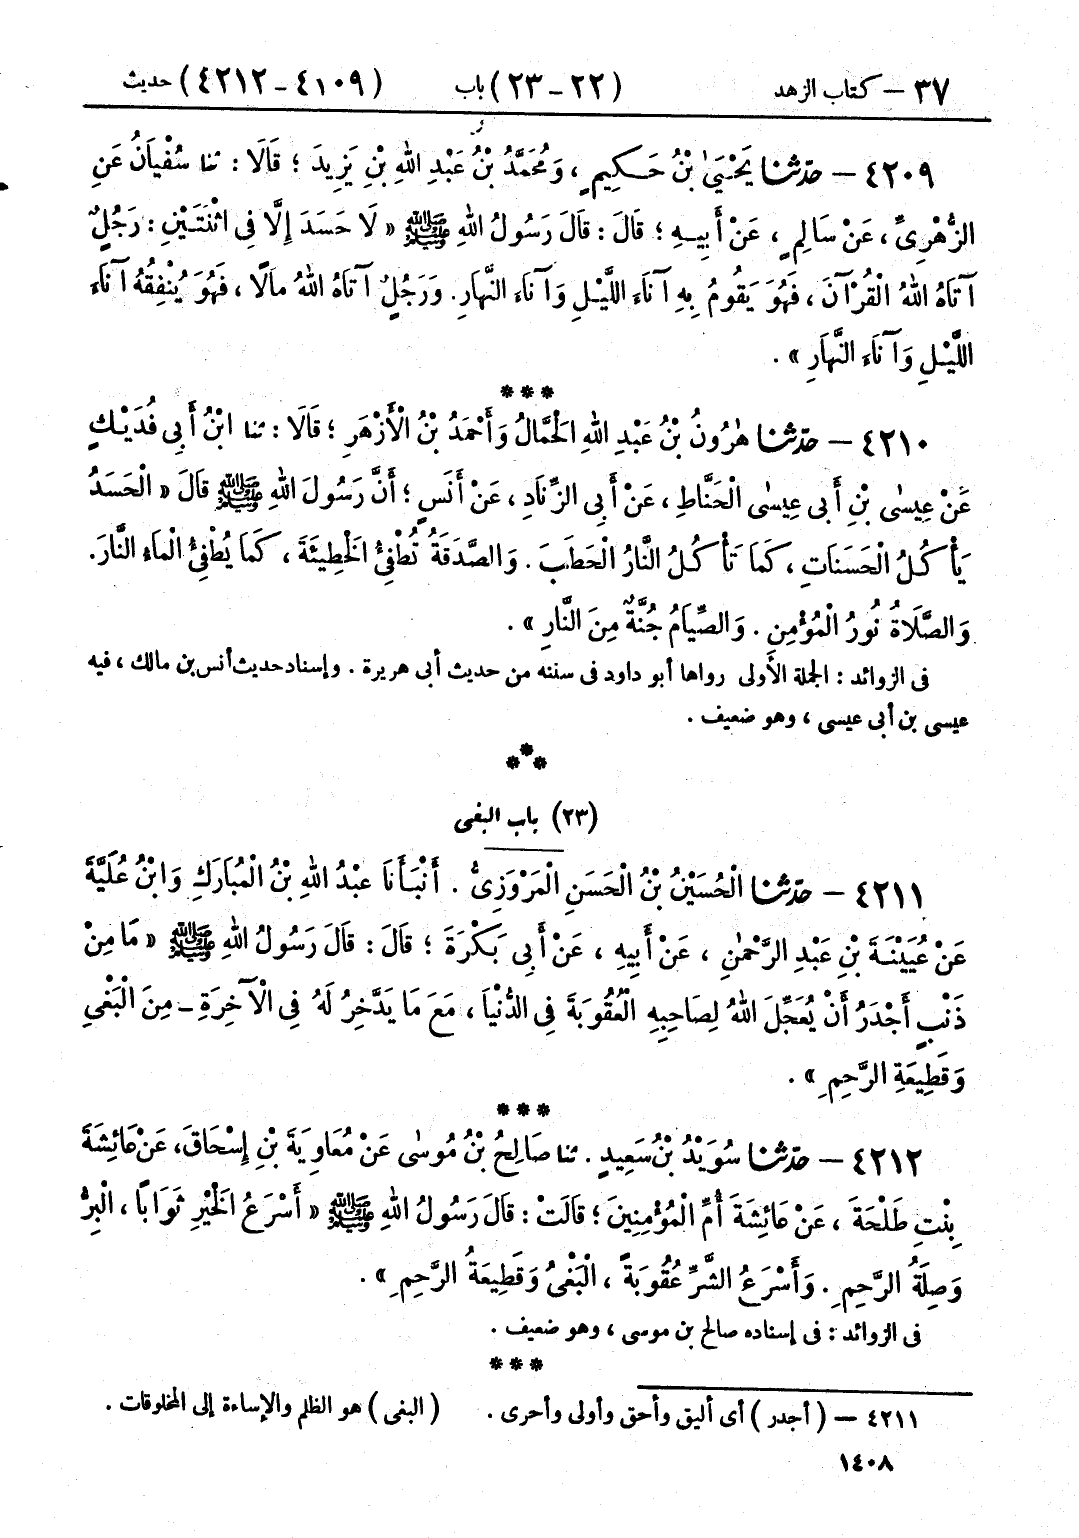 ٣٧ – كتاب الزهد (٢٢ – ٢٣) باب (٤١٠٩ – ٤٢١٢) حديث
٤٢٠٩ – حدّثنا يَحْيَىٰ بْنُ حَكِيمٍ، وَمُحَمَّدُ بْنُ عَبْدِ اللهِ بْنِ يَزِيدَ ؛ قَالَا : ثنا سُفْيَانُ عَنِ
الزُّهْرِىِّ، عَنْ سَالِمٍ، عَنْ أَبِيهِ ؛ قَالَ : قَالَ رَسُولُ اللهِ ﷺ « لَا حَسَدَ إِلَّا فِى اثْنَتَيْنِ : رَجُلٌ
آتَاهُ اللهُ الْقُرْآنَ، فَهُوَ يَقُومُ بِهِ آنَاءَ اللَّيْلِ وَآنَاءَ النَّهَارِ. وَرَجُلٌ آتَاهُ اللهُ مَالًا، فَهُوَ يُنْفِقُهُ آنَاءَ
اللَّيْلِ وَآنَاءَ النَّهَارِ » .
***
٤٢١٠ – حدّثنا هٰرُونُ بْنُ عَبْدِ اللهِ الْحَمَّالُ وَأَحْمَدُ بْنُ الْأَزْهَرِ ؛ قَالَا : ثنا ابْنُ أَبِى فُدَيْكٍ
عَنْ عِيسٰى بْنِ أَبِى عِيسٰى الْحَنَّاطِ، عَنْ أَبِى الزِّنَادِ، عَنْ أَنَسٍ ؛ أَنَّ رَسُولَ اللهِ ﷺ قَالَ « الْحَسَدُ
يَأْكُلُ الْحَسَنَاتِ، كَمَا تَأْكُلُ النَّارُ الْحَطَبَ . وَالصَّدَقَةُ تُطْفِئُ الْخَطِيئَةَ، كَمَا يُطْفِئُ الْمَاءُ النَّارَ.
وَالصَّلَاةُ نُورُ الْمُؤْمِنِ . وَالصِّيَامُ جُنَّةٌ مِنَ النَّارِ » .
فى الزوائد : الجملة الأولى رواها أبو داود فى سننه من حديث أبى هريرة . وإسناد حديث أنس بن مالك، فيه
عيسى بن أبى عيسى، وهو ضعيف .
***
(٢٣) باب البغى
٤٢١١ – حدّثنا الْحُسَيْنُ بْنُ الْحَسَنِ الْمَرْوَزِىُّ . أَنْبَأَنَا عَبْدُ اللهِ بْنُ الْمُبَارَكِ وَابْنُ عُلَيَّةَ
عَنْ عُيَيْنَةَ بْنِ عَبْدِ الرَّحْمٰنِ، عَنْ أَبِيهِ، عَنْ أَبِى بَكْرَةَ ؛ قَالَ : قَالَ رَسُولُ اللهِ ﷺ « مَا مِنْ
ذَنْبٍ أَجْدَرُ أَنْ يُعَجِّلَ اللهُ لِصَاحِبِهِ الْعُقُوبَةَ فِى الدُّنْيَا، مَعَ مَا يَدَّخِرُ لَهُ فِى الْآخِرَةِ – مِنَ الْبَغْىِ
وَقَطِيعَةِ الرَّحِمِ » .
***
٤٢١٢ – حدّثنا سُوَيْدُ بْنُ سَعِيدٍ . ثنا صَالِحُ بْنُ مُوسٰى عَنْ مُعَاوِيَةَ بْنِ إِسْحَاقَ، عَنْ عَائِشَةَ
بِنْتِ طَلْحَةَ، عَنْ عَائِشَةَ أُمِّ الْمُؤْمِنِينَ ؛ قَالَتْ : قَالَ رَسُولُ اللهِ ﷺ « أَسْرَعُ الْخَيْرِ ثَوَابًا، الْبِرُّ
وَصِلَةُ الرَّحِمِ . وَأَسْرَعُ الشَّرِّ عُقُوبَةً، الْبَغْىُ وَقَطِيعَةُ الرَّحِمِ » .
فى الزوائد : فى إسناده صالح بن موسى، وهو ضعيف .
***
٤٢١١ – ( أجدر ) أى أليق وأحق وأولى وأحرى . ( البغى ) هو الظلم والإساءة إلى المخلوقات .
١٤٠٨